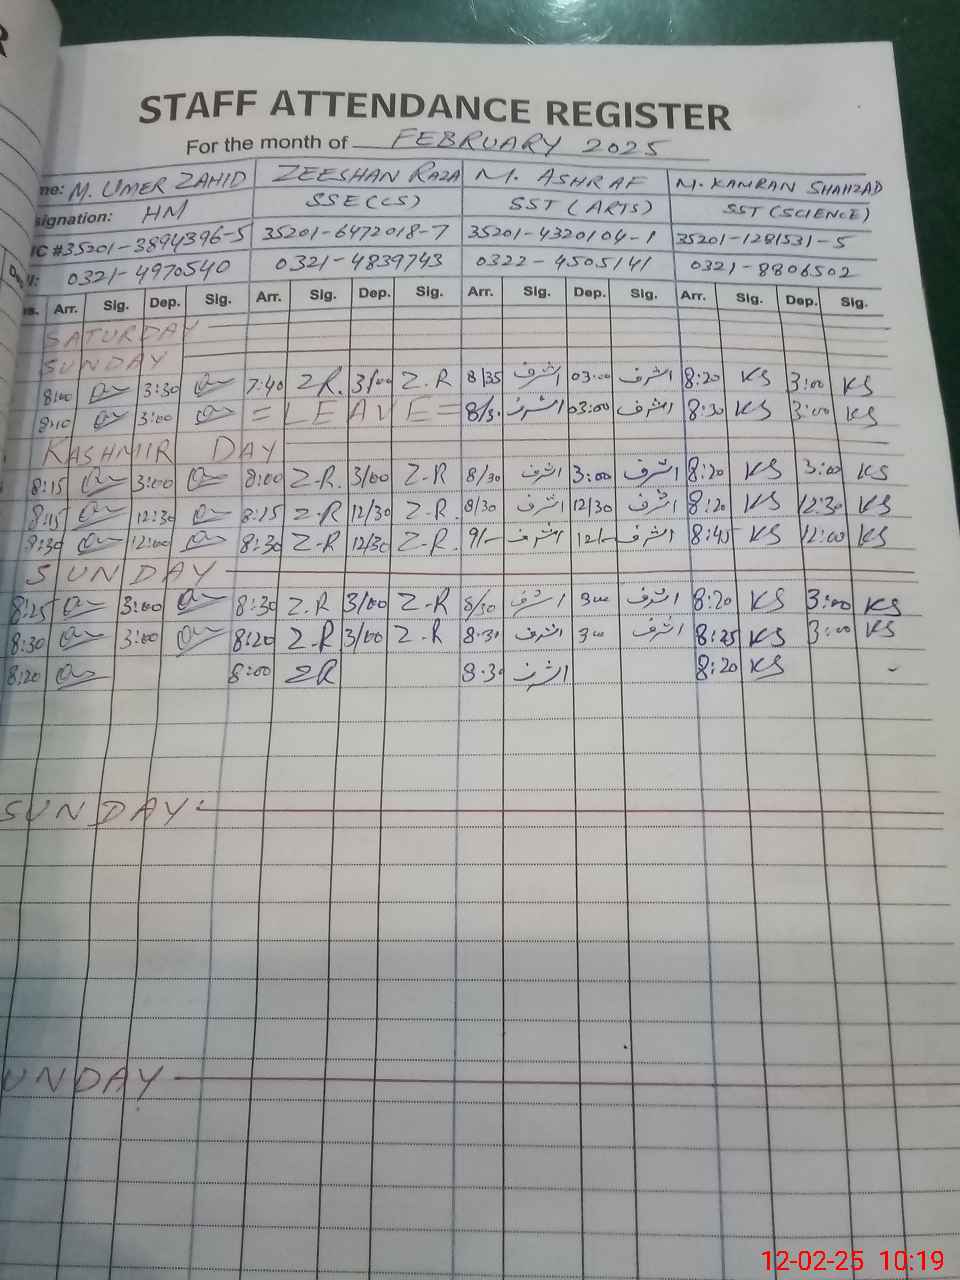 STAFF ATTENDANCE REGISTER
For the month of FEBRUARY 2025
me: M. UMER ZAHID ZEESHAN RAZA M. ASHRAF M. KAMRAN SHAHZAD
signation: HM SSE(CS) SST (ARTS) SST (SCIENCE)
IC #35201-3894396-5 35201-6472018-7 35201-4320104-1 35201-1281531-5
0321-4970540 0321-4839743 0322-4505141 0321-8806502
Arr. Sig. Dep. Sig. Arr. Sig. Dep. Sig. Arr. Sig. Dep. Sig. Arr. Sig. Dep. Sig.
SATURDAY
SUNDAY
8:00 3:30 7:40 ZR. 3/00 Z.R 8/35 اشرف 03:00 اشرف 8:20 KS 3:00 KS
8:10 3:00 = LEAVE = 8/30 اشرف 03:00 اشرف 8:30 KS 3:00 KS
KASHMIR DAY
8:15 3:00 8:00 Z-R. 3/00 Z-R 8/30 اشرف 3:00 اشرف 8:20 KS 3:00 KS
8:15 12:30 8:15 Z-R 12/30 Z-R. 8/30 اشرف 12/30 اشرف 8:20 KS 12:30 KS
8:30 12:00 8:30 Z-R 12/30 Z-R. 9/- اشرف 12/- اشرف 8:45 KS 12:00 KS
SUNDAY
8:25 3:00 8:30 Z.R 3/00 Z-R 8/30 اشرف 300 اشرف 8:20 KS 3:00 KS
8:30 3:00 8:20 Z.R 3/00 Z-R 8.30 اشرف 300 اشرف 8:25 KS 3:00 KS
8:20 8:00 ZR 8.30 اشرف 8:20 KS -
SUNDAY:
UNDAY
12-02-25 10:19